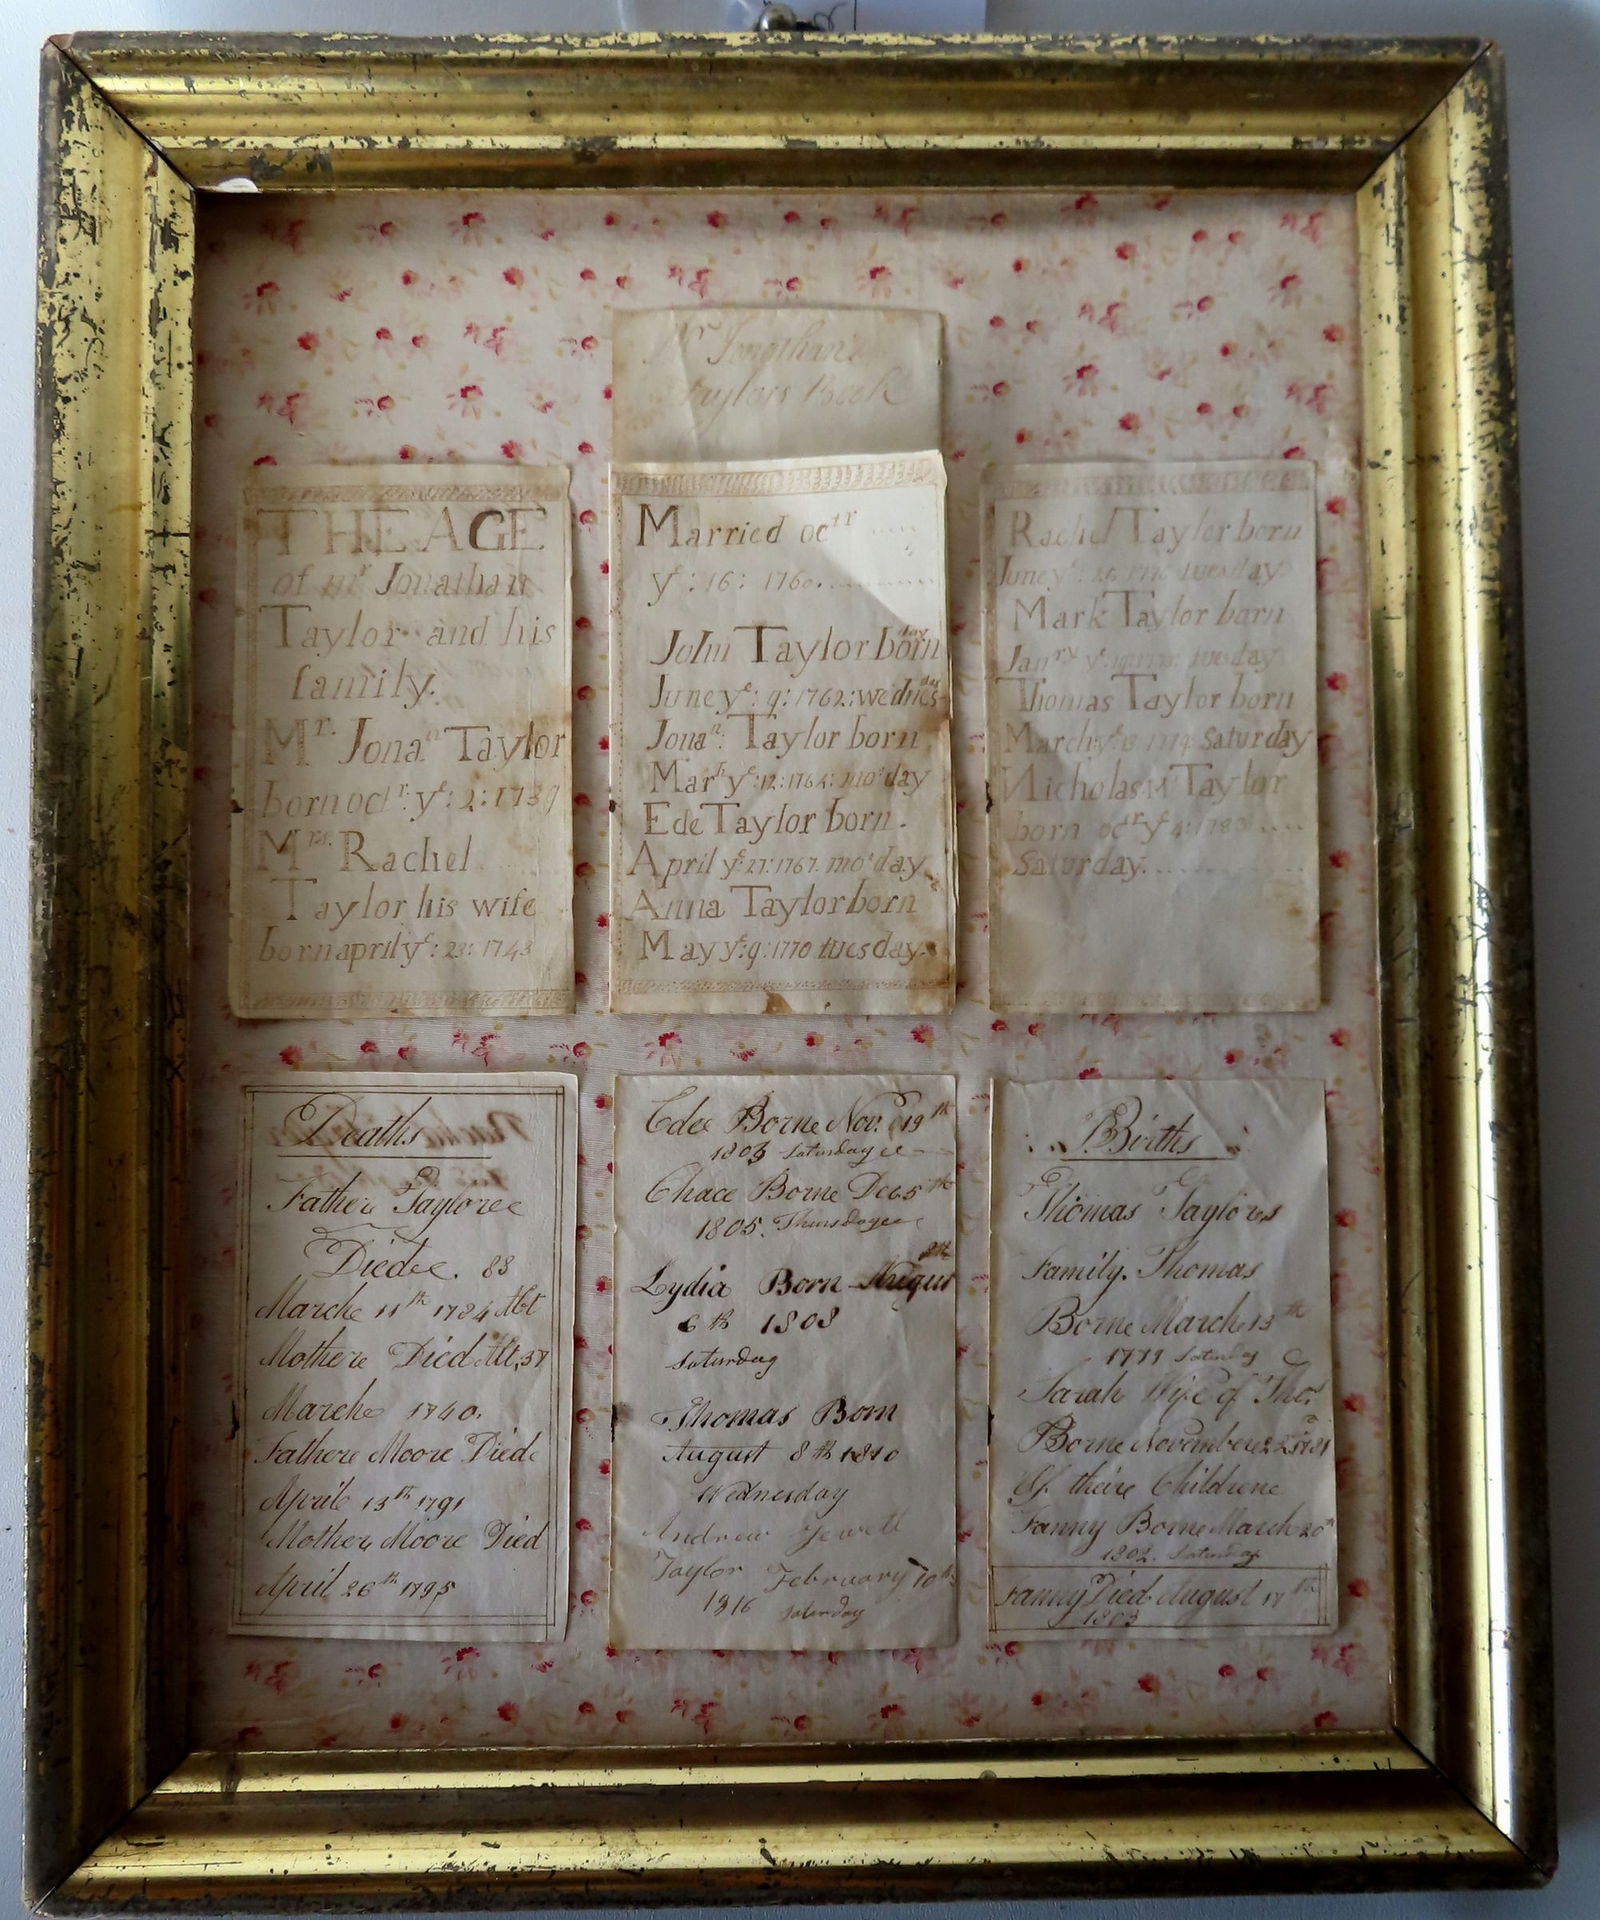 Mr Jonathan
Taylors Book
THE AGE
of mr Jonathan
Taylor and his
family.
Mr. Jonan Taylor
born octr: ye: 2: 1739
Mrs. Rachel
Taylor his wife
born april ye: 23: 1743
Married octr
ye: 16: 1760.
John Taylor born
June ye: 9: 1762: wednesday
Jonan: Taylor born
Marh ye: 12: 1764: monday
Ede Taylor born.
April ye: 27: 1767. monday
Anna Taylor born
May ye: 9: 1770 tuesday.
Rachel Taylor born
June ye: tuesday
Mark Taylor born
Janry ye: tuesday
Thomas Taylor born
March ye: 13 1779 Saturday
Nicholas M Taylor
born octr ye 4: 1783
Saturday.
Deaths
Father Taylore
Diede. 88
Marche 11th 1784 Aet
Mothere Died Aet, 37
Marche 1740.
Fathere Moore Died
Aprile 13th 1791
Mother Moore Died
Aprile 26th 1795
Edee Borne Nov. 19th
1803 Saturday
Chace Borne Dec 5th
1805. Thursdaye
Lydia Born Augus
6th 1808
Saturday
Thomas Born
August 8th 1810
Wednesday
Andrew Jewett
Taylor February 10th
1816 Saturday
Births
Thomas Taylores
Family. Thomas
Borne March 13th
1779 Saturday
Sarah Wife of Thos
Borne Novembere
Of theire Childrene
Fanny Borne March 20th
1802. Saturday
Fanny Died August 17th
1803